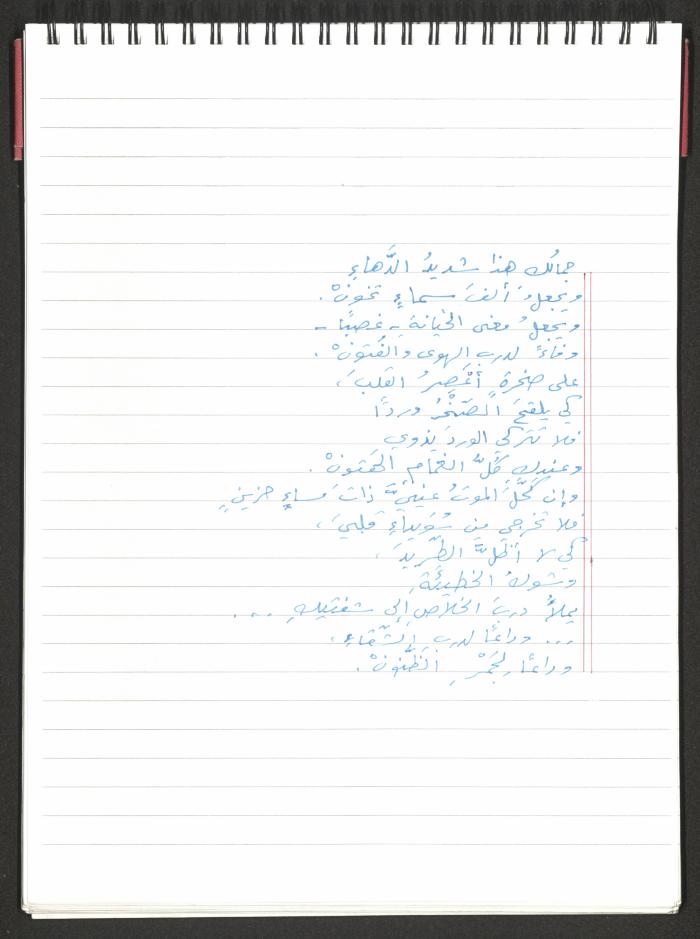 جمالُك هذا شديدُ الدَّهاءِ
ويجعلُ ألفَ سماءٍ تخونْ.
ويجعلُ معنى الخيانةِ - غصبًا -
وفاءً لدربِ الهوى والفُتونْ.
على صخرةٍ أعْصِرُ القلبَ،
كي يلقحَ الصّخْرُ وردًا
فلا تتركي الوردَ يذوي
وعندكِ كُلُّ الغمامِ الهَتونْ.
وإن كَحَّلَ الموتُ عينيَّ ذاتَ مساءٍ حزينٍ
فلا تخرجي من سُوَيداءِ قلبيَ،
كي لا أظلَّ الطّريدَ،
وشوكُ الخطيئَةِ
يملأُ دربَ الخلاصِ إلى شفتيكِ ...
... وداعًا لدربِ الشّقاءِ،
وداعًا لِجَمْرِ الظّنونْ.